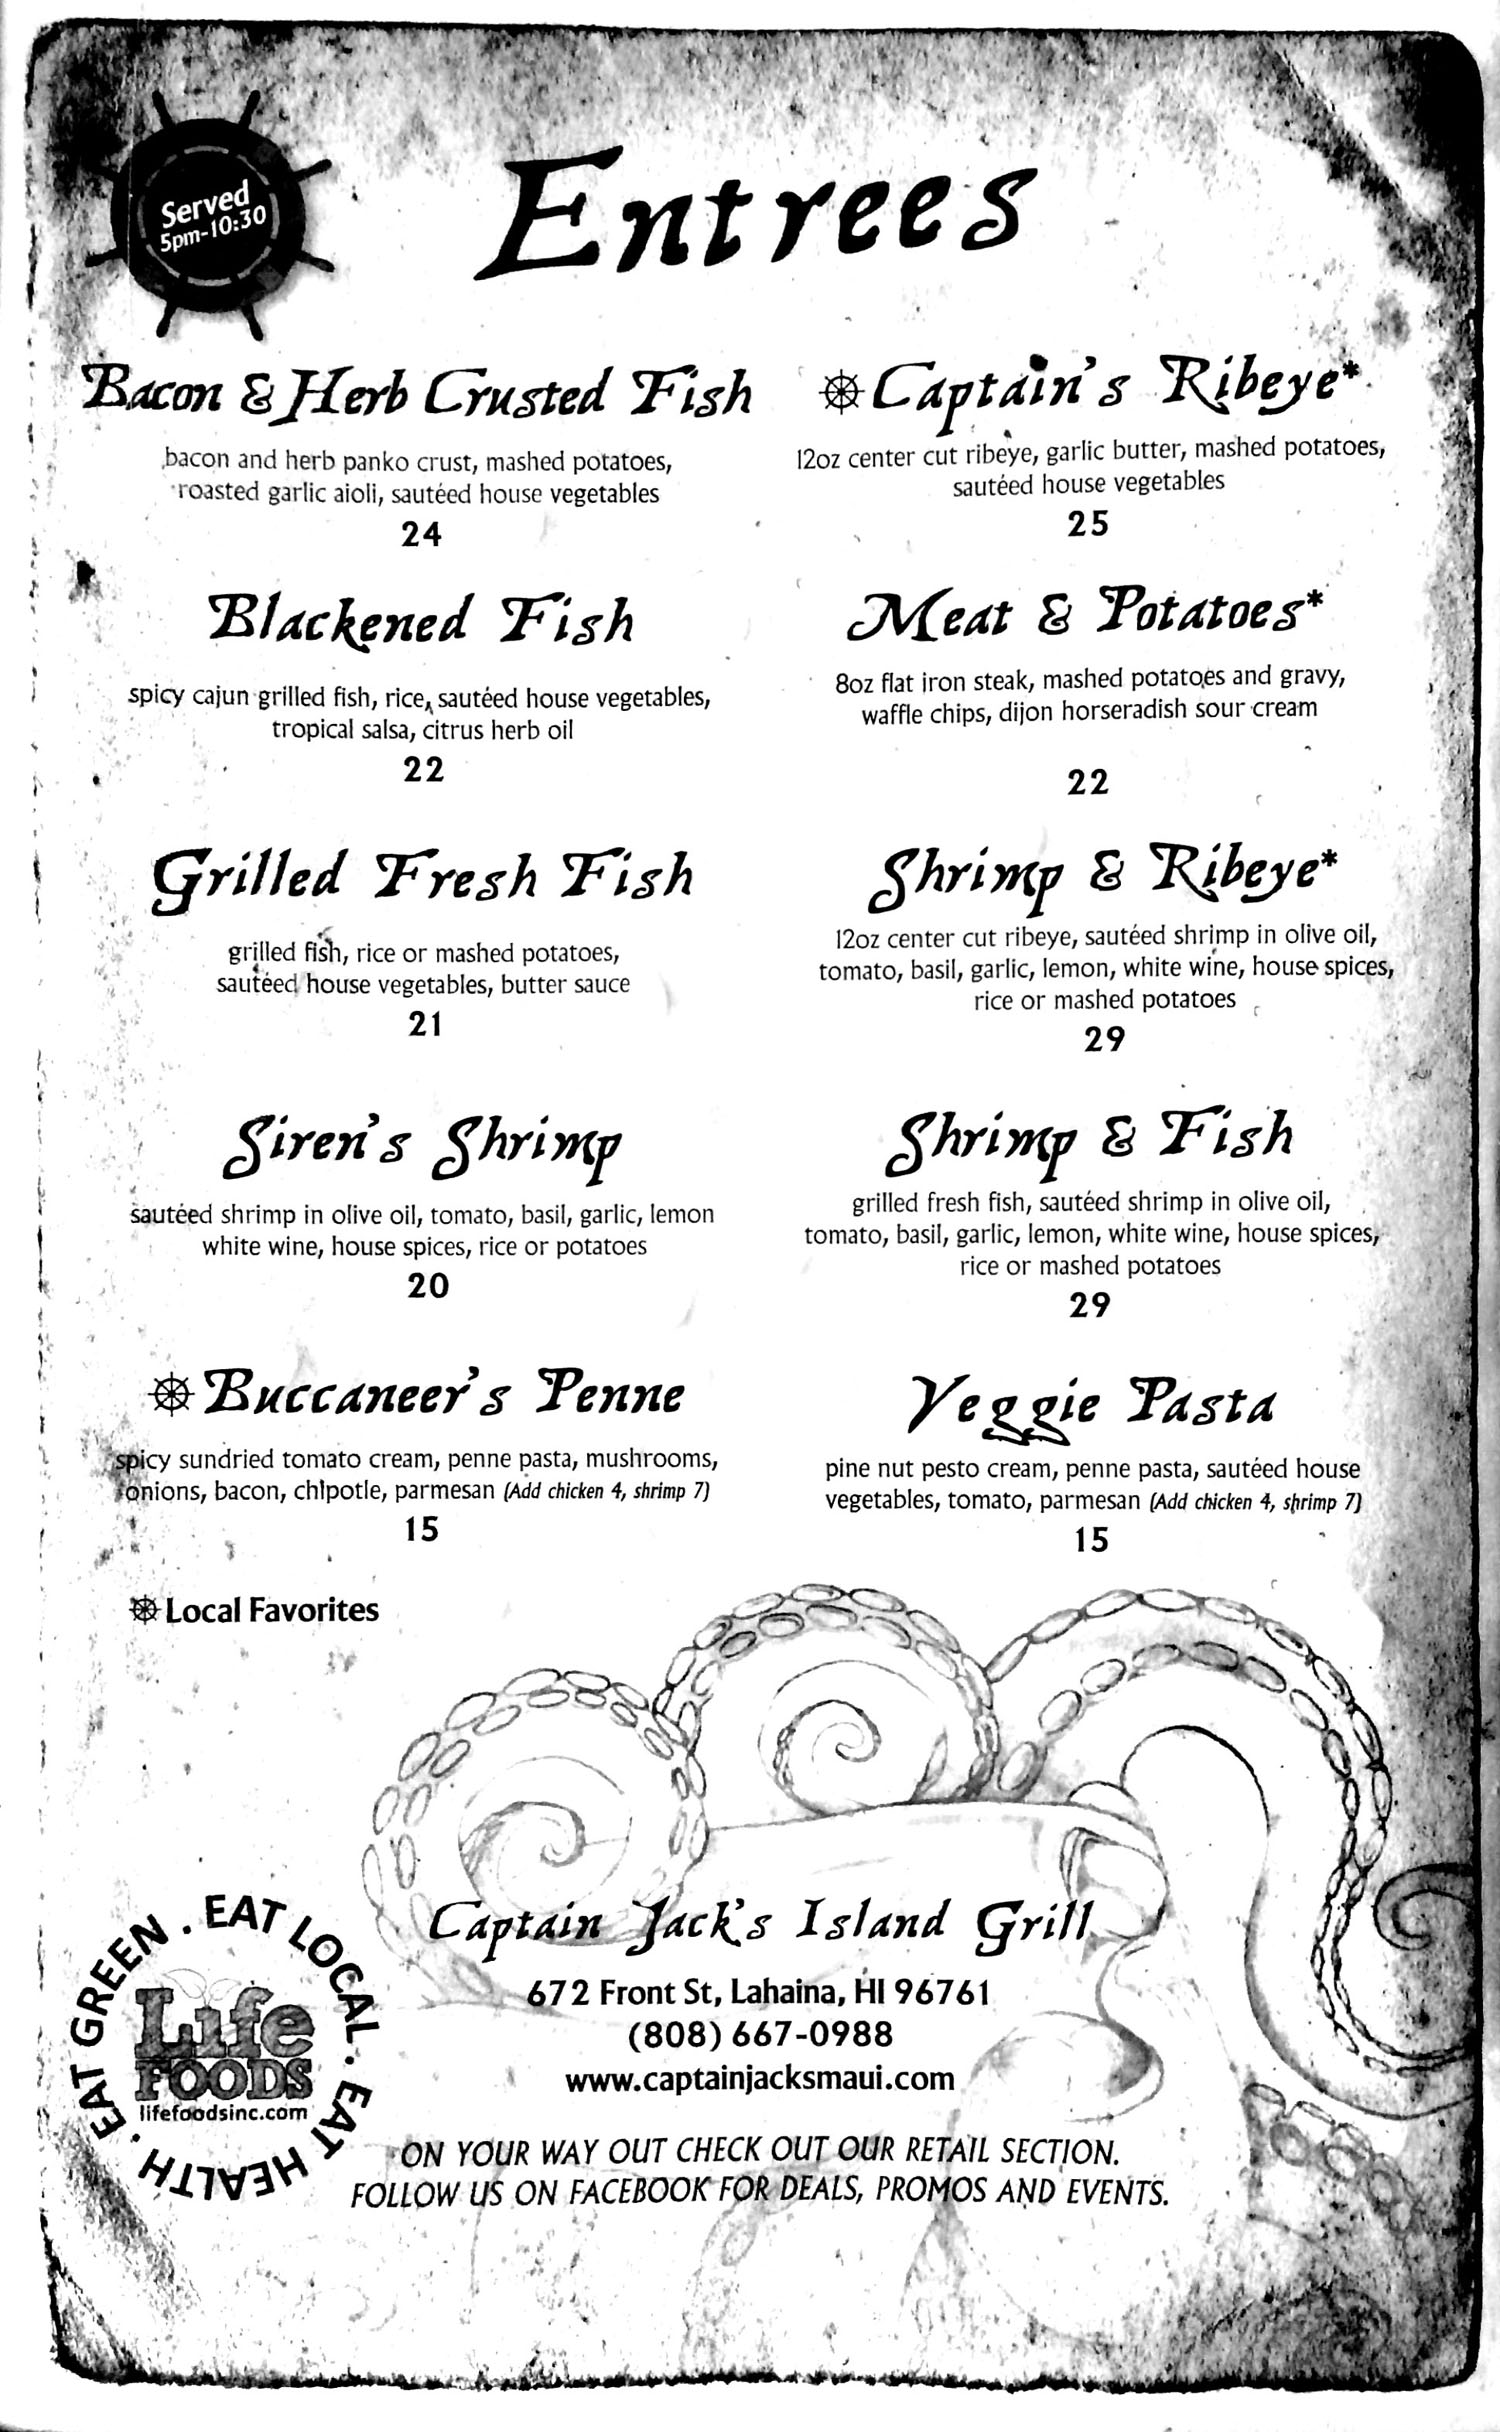 Served
5pm-10:30
Entrees
Bacon & Herb Crusted Fish
bacon and herb panko crust, mashed potatoes,
roasted garlic aioli, sautéed house vegetables
24
Blackened Fish
spicy cajun grilled fish, rice, sautéed house vegetables,
tropical salsa, citrus herb oil
22
Grilled Fresh Fish
grilled fish, rice or mashed potatoes,
sautéed house vegetables, butter sauce
21
Siren's Shrimp
sautéed shrimp in olive oil, tomato, basil, garlic, lemon
white wine, house spices, rice or potatoes
20
Buccaneer's Penne
spicy sundried tomato cream, penne pasta, mushrooms,
onions, bacon, chipotle, parmesan (Add chicken 4, shrimp 7)
15
Local Favorites
Captain's Ribeye*
12oz center cut ribeye, garlic butter, mashed potatoes,
sautéed house vegetables
25
Meat & Potatoes*
8oz flat iron steak, mashed potatoes and gravy,
waffle chips, dijon horseradish sour cream
22
Shrimp & Ribeye*
12oz center cut ribeye, sautéed shrimp in olive oil,
tomato, basil, garlic, lemon, white wine, house spices,
rice or mashed potatoes
29
Shrimp & Fish
grilled fresh fish, sautéed shrimp in olive oil,
tomato, basil, garlic, lemon, white wine, house spices,
rice or mashed potatoes
29
Veggie Pasta
pine nut pesto cream, penne pasta, sautéed house
vegetables, tomato, parmesan (Add chicken 4, shrimp 7)
15
EAT GREEN . EAT LOCAL . EAT HEALTH .
Life
FOODS
lifefoodsinc.com
Captain Jack's Island Grill
672 Front St, Lahaina, HI 96761
(808) 667-0988
www.captainjacksmaui.com
ON YOUR WAY OUT CHECK OUT OUR RETAIL SECTION.
FOLLOW US ON FACEBOOK FOR DEALS, PROMOS AND EVENTS.